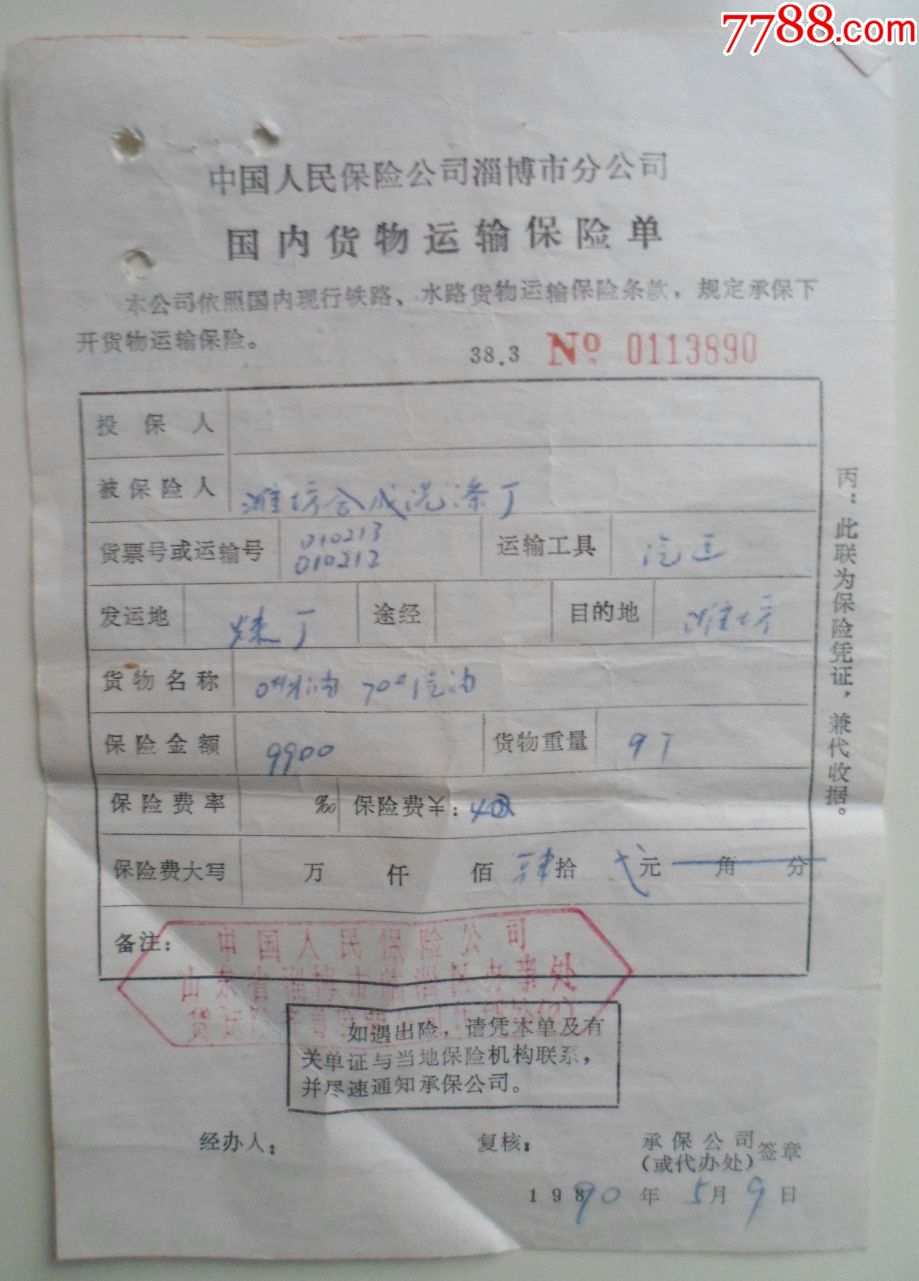 7788.com
中国人民保险公司淄博市分公司
国内货物运输保险单
本公司依照国内现行铁路、水路货物运输保险条款，规定承保下
开货物运输保险。
38.3 No 0113890
投保人
被保险人 潍坊合成洗涤厂
货票号或运输号 010213 010212 运输工具 汽
发运地 炼厂 途经 目的地 潍坊
货物名称 70# 汽油
保险金额 9900 货物重量 9T
保险费率 ‰ 保险费￥：
保险费大写 万 仟 佰 肆拾 弍元 角 分
备注：
中国人民保险公司
山东省淄博市临淄区办事处
如遇出险，请凭本单及有
关单证与当地保险机构联系，
并尽速通知承保公司。
经办人： 复核： 承保公司
(或代办处) 签章
1990年5月9日
丙：此联为保险凭证，兼代收据。